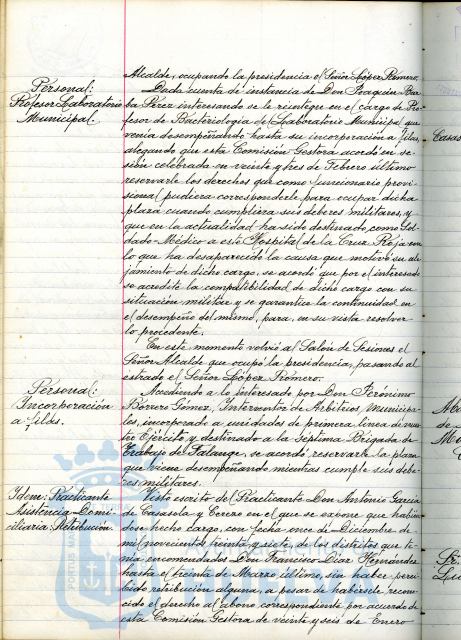 Alcalde, ocupando la presidencia el Señor López Romero.
Personal:
Profesor Laboratorio
Municipal.
Dada cuenta de instancia de Don Joaquin
ba Pérez interesando se le reintegre en el cargo de Pro-
fesor de Bacteriología del Laboratorio Municipal que
venía desempeñando hasta su incorporación a filas,
alegando que esta Comisión Gestora acordó en se-
sión celebrada en veinte y tres de Febrero último
reservarle los derechos que como funcionario provi-
sional pudiera corresponderle para ocupar dicha
plaza cuando cumpliera sus deberes militares, y
que en la actualidad ha sido destinado como Sol-
dado-Médico a este Hospital de la Cruz Roja con
lo que ha desaparecido la causa que motivó su ale-
jamiento de dicho cargo, se acordó que por el interesado
se acredite la compatibilidad de dicho cargo con su
situación militar y se garantice la continuidad en
el desempeño del mismo, para, en su vista resolver
lo procedente.
En este momento volvió al Salón de Sesiones el
Señor Alcalde que ocupó la presidencia, pasando al
estrado el Señor López Romero.
Personal:
Incorporación
a filas.
Accediendo a lo interesado por Don Jerónimo
Borrero Gómez, Interventor de Arbitrios Municipa-
les, incorporado a unidades de primera línea de nues-
tro Ejército y destinado a la Septima Brigada de
Trabajo de Falange, se acordó reservarle la plaza
que viene desempeñando mientras cumple sus debe-
res militares.
Idem: Practicante
Asistencia Domi-
ciliaria: Retribución
Visto escrito del Practicante Don Antonio García
de Casasola y Cerezo en el que se expone que habién-
dose hecho cargo, con fecha once de Diciembre de
mil novecientos treinta y siete, de los distritos que te-
nía encomendados Don Francisco Diaz Hernández
hasta el treinta de Marzo último, sin haber perci-
bido retribución alguna, a pesar de habérsele recono-
cido el derecho al abono correspondiente por acuerdo de
esta Comisión Gestora de veinte y seis de Enero
Casas
de